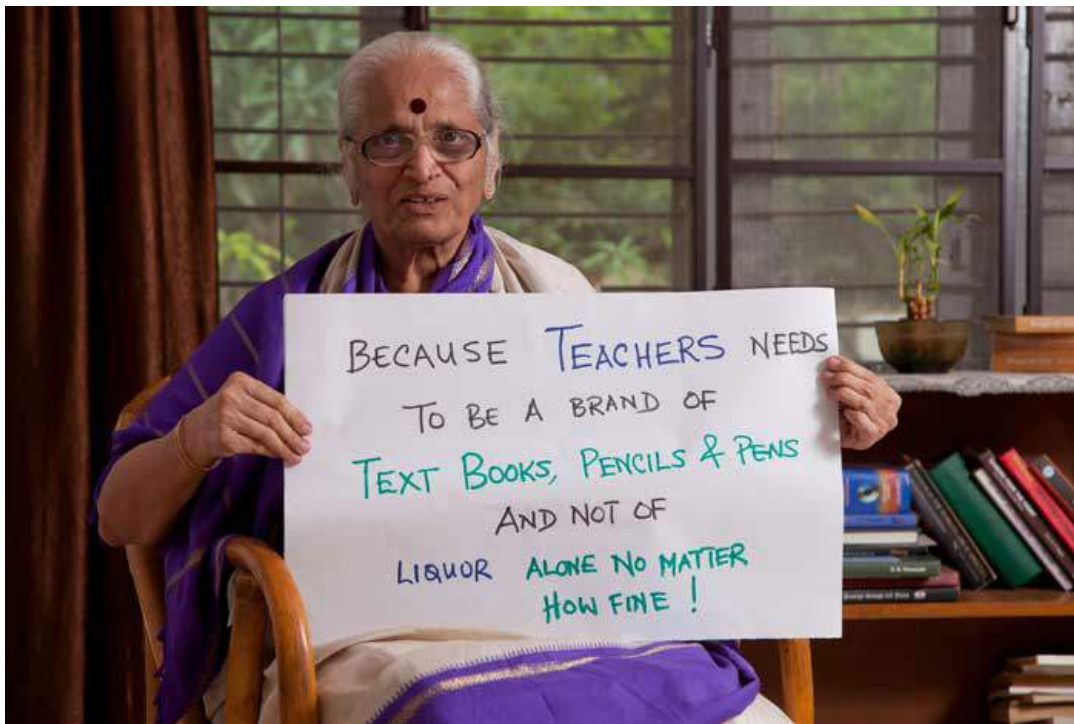 BECAUSE TEACHERS NEEDS
TO BE A BRAND OF
TEXT BOOKS, PENCILS & PENS
AND NOT OF
LIQUOR ALONE NO MATTER
HOW FINE !